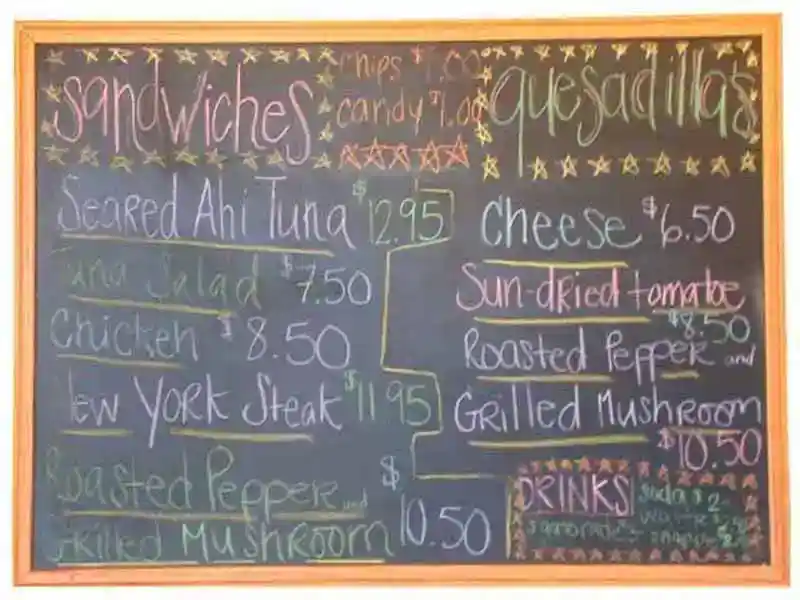 Sandwiches
chips $1.00
candy $1.00
quesadilla's
Seared Ahi Tuna $12.95
Tuna Salad $7.50
Chicken $8.50
New York Steak $11.95
Roasted Pepper and
Grilled Mushroom $10.50
Cheese $6.50
Sun-dried tomatoe
$8.50
Roasted Pepper and
Grilled Mushroom
$10.50
DRINKS
soda $2